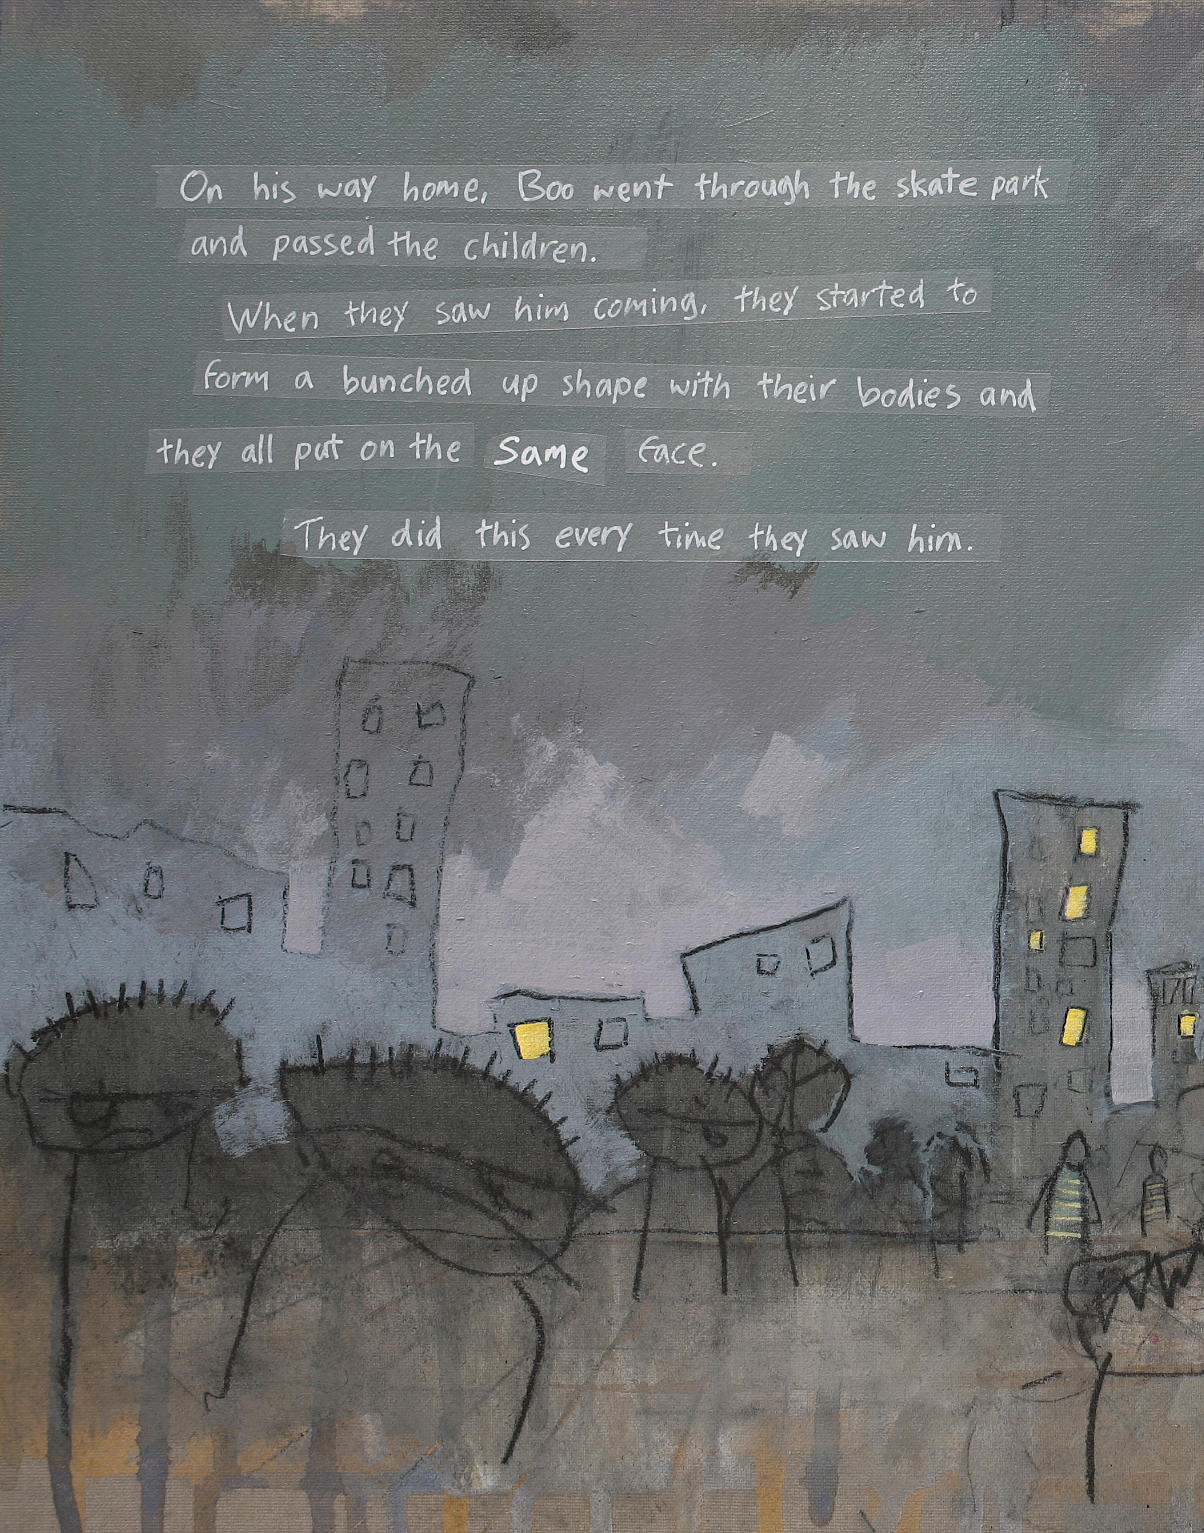 On his way home, Boo went through the skate park
and passed the children.
When they saw him coming, they started to
form a bunched up shape with their bodies and
they all put on the same face.
They did this every time they saw him.